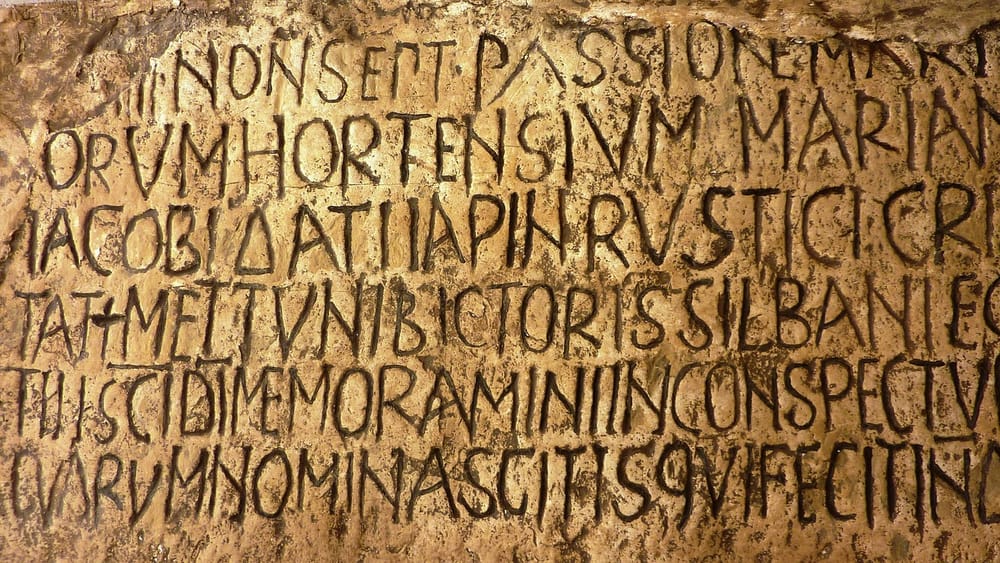 IIII NONSEPT·PASSIONEMARTV
ORVMHORTENSIVM MARIAN
IACOBIDATIIAPINRVSTICICRI
TAT+METTVNIBICTORISSILBANIEG
TIIISCIDIMEMORAMINIINCONSPECTV
QVARVMNOMINASCITISQVIFECITIND